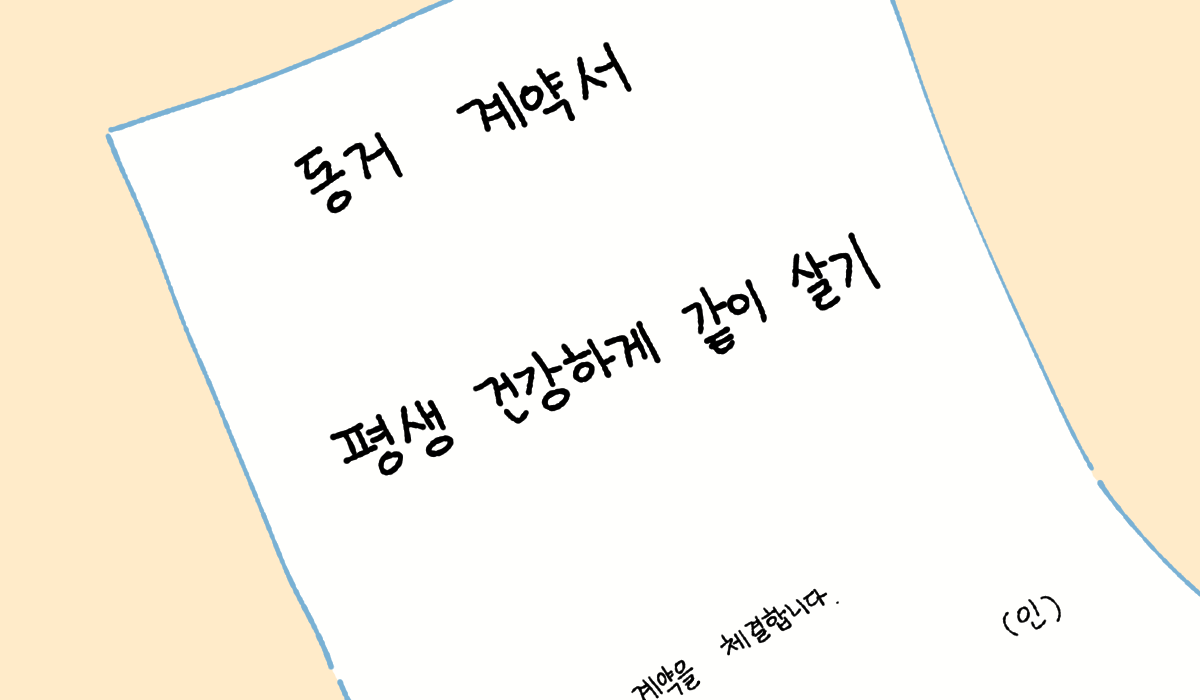 동거 계약서
평생 건강하게 같이 살기
계약을 체결합니다.
(인)